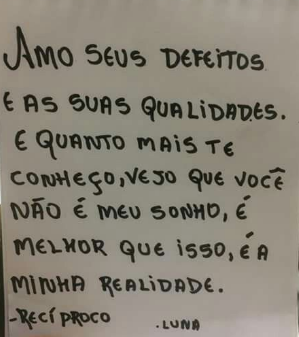 AMO SEUS DEFEITOS
E AS SUAS QUALIDADES.
E QUANTO MAIS TE
CONHEÇO, VEJO QUE VOCÊ
NÃO É MEU SONHO, É
MELHOR QUE ISSO, É A
MINHA REALIDADE.
-RECÍPROCO .LUNA